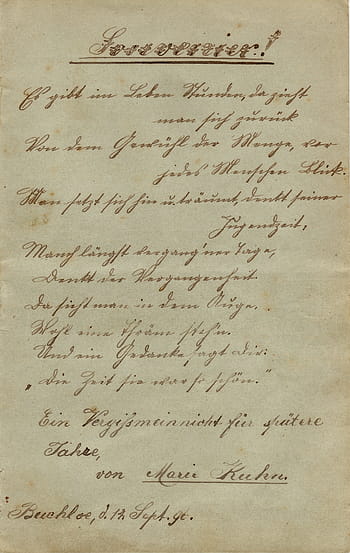 Souvenier!
Es gibt im Leben Stunden, da zieht
man sich zurück
Von dem Gewühl der Menge, vor
jedes Menschen Blick.
Man setzt sich hin u. träumt, denkt seiner
Jugendzeit,
Manch längst vergang'ner Tage,
Denkt der Vergangenheit
Da sieht man in dem Auge.
Wohl eine Thräne steh'n.
Und ein Gedanke sagt dir:
„Die Zeit sie war so schön."
Ein Vergißmeinnicht für spätere
Jahre,
von Marie Kuhn.
Buchloe, d. 12. Sept. 90.